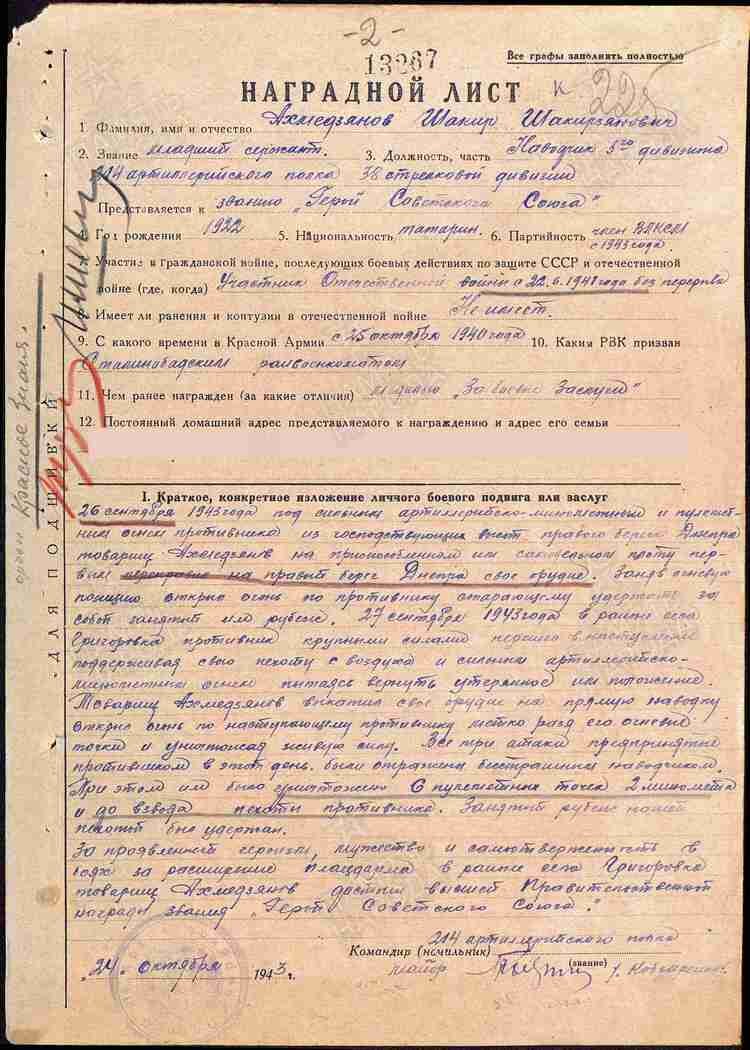 -2-
13267
Все графы заполнить полностью
НАГРАДНОЙ ЛИСТ
к 225
1. Фамилия, имя и отчество Ахмедзянов Шакир Шакирзянович
2. Звание младший сержант. 3. Должность, часть Наводчик 3го дивизиона
214 артиллерийского полка 38 стрелковой дивизии
Представляется к званию „Герой Советского Союза"
4. Год рождения 1922 5. Национальность татарин. 6. Партийность член ВЛКСМ
с 1943 года.
7. Участие в гражданской войне, последующих боевых действиях по защите СССР и отечественной
войне (где, когда) Участник Отечественной войны с 22.6.1941 года без перерыва
8. Имеет ли ранения и контузии в отечественной войне Не имеет.
9. С какого времени в Красной Армии с 25 октября 1940 года 10. Каким РВК призван
Сталинабадским райвоенкоматом
11. Чем ранее награжден (за какие отличия) медалью „За боевые Заслуги"
12. Постоянный домашний адрес представляемого к награждению и адрес его семьи
I. Краткое, конкретное изложение личного боевого подвига или заслуг
26 сентября 1943 года под сильным артиллерийско-минометным и пулемет-
ным огнем противника из господствующих высот правого берега Днепра
товарищ Ахмедзянов на приспособленном им самодельном плоту пер-
вым переправил на правый берег Днепра свое орудие. Заняв огневую
позицию открыл огонь по противнику старающему удержать за
собой занятый им рубеж. 27 сентября 1943 года в районе села
Григоровка противник крупными силами перешел в наступление
поддерживая свою пехоту с воздуха и сильным артиллерийско-
минометным огнем пытаясь вернуть утерянное им положение.
Товарищ Ахмедзянов выкатил свое орудие на прямую наводку
открыл огонь по наступающему противнику метко разя его огневые
точки и уничтожая живую силу. Все три атаки предпринятые
противником в этот день были отражены бесстрашным наводчиком.
При этом им было уничтожено 6 пулеметных точек 2 миномета
и до взвода пехоты противника. Занятый рубеж нашей
пехотой был удержан.
За проявленный героизм, мужество и самоотверженность в
боях за расширение плацдарма в районе села Григоровка
товарищ Ахмедзянов достоин высшей Правительственной
награды звания „Герой Советского Союза."
214 артиллерийского полка
Командир (начальник)
майор (звание)
„24" октября 1943 г.
ДЛЯ ПОДШИВКИ
орден Красное Знамя.